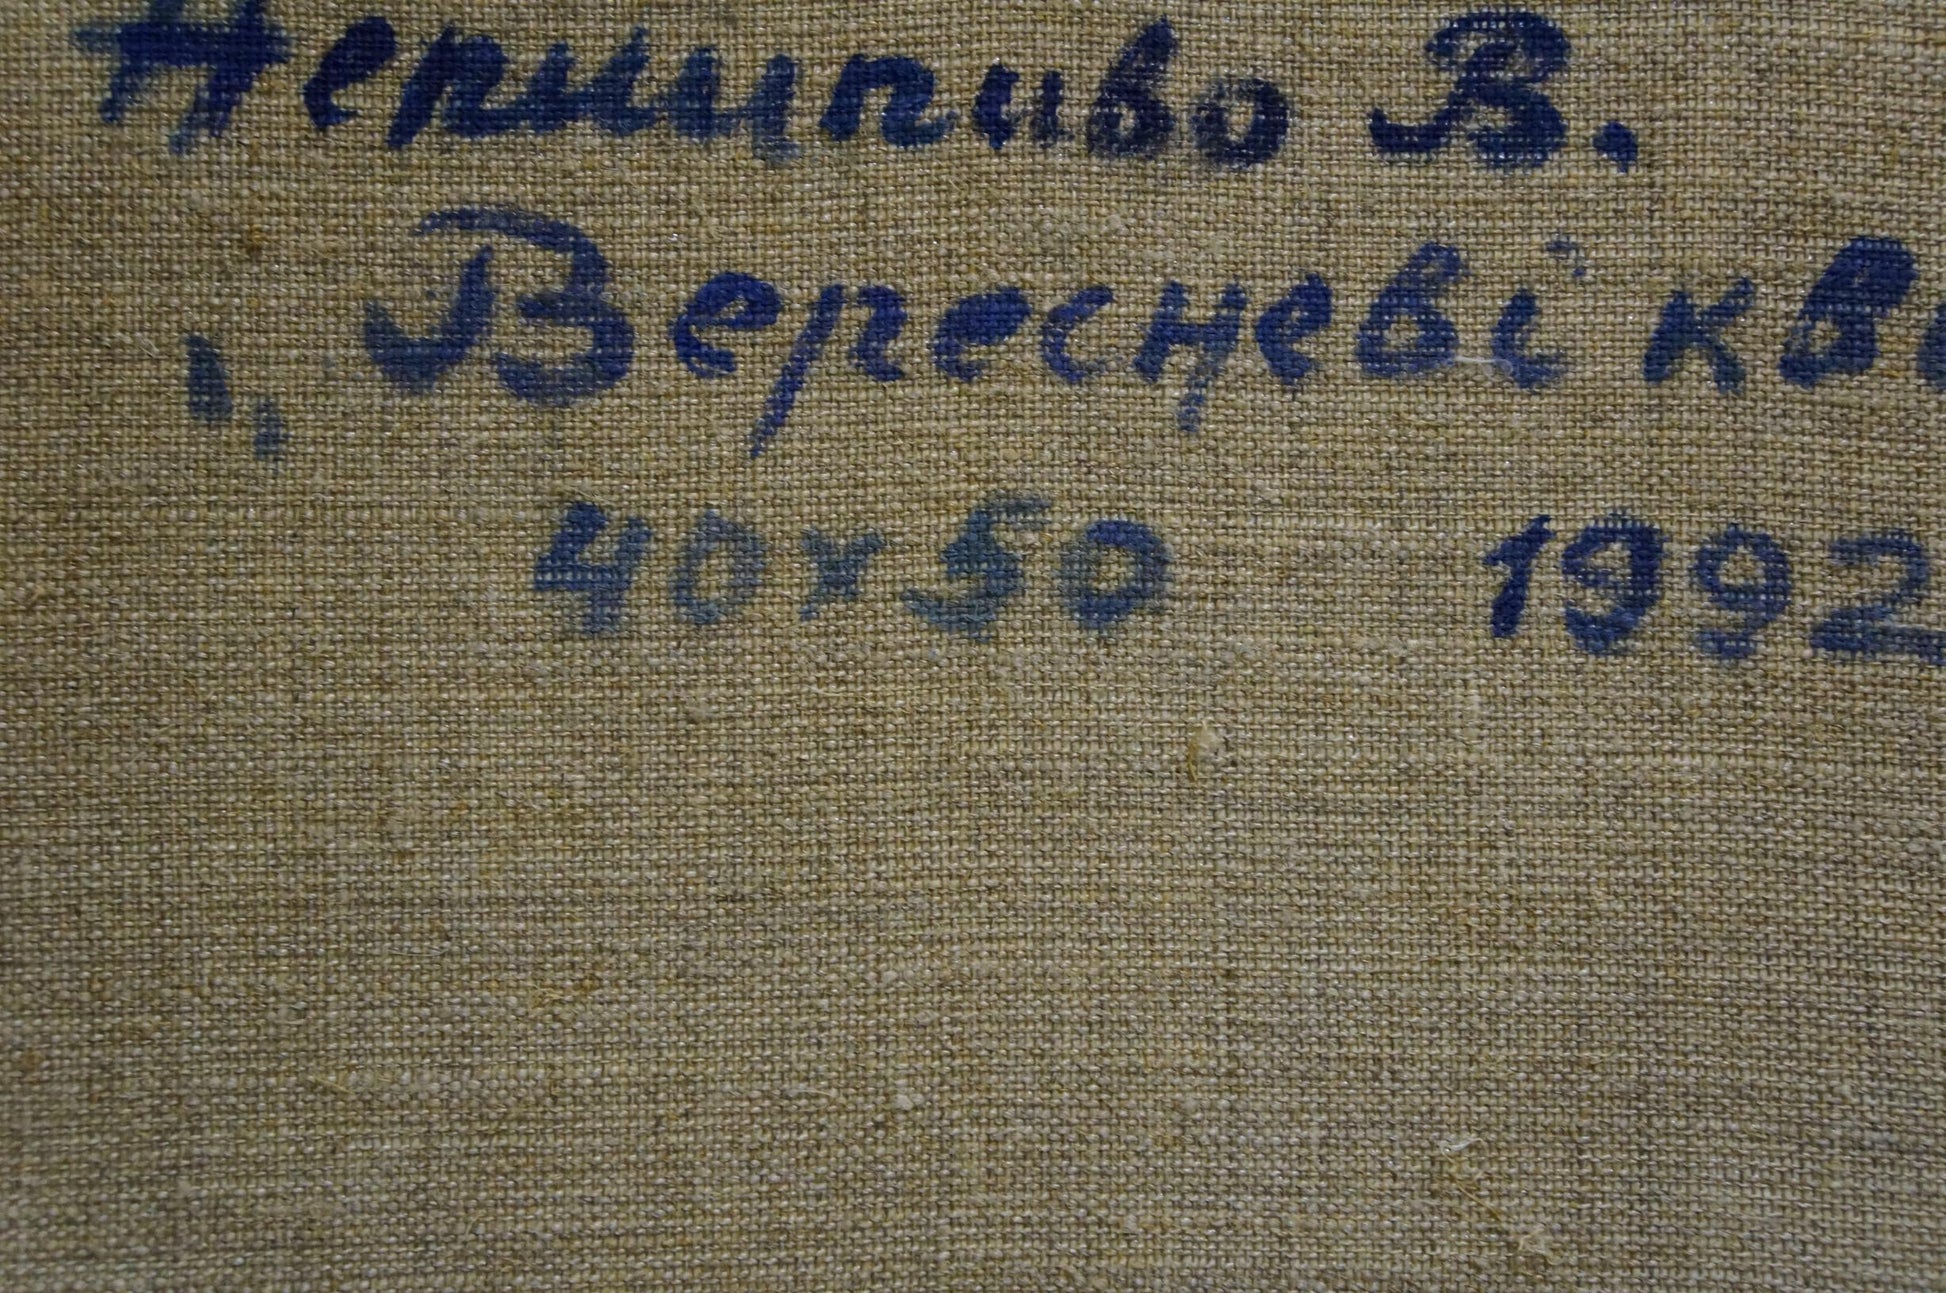 Непийпиво В.
„Вересневі кв
40х50 1992